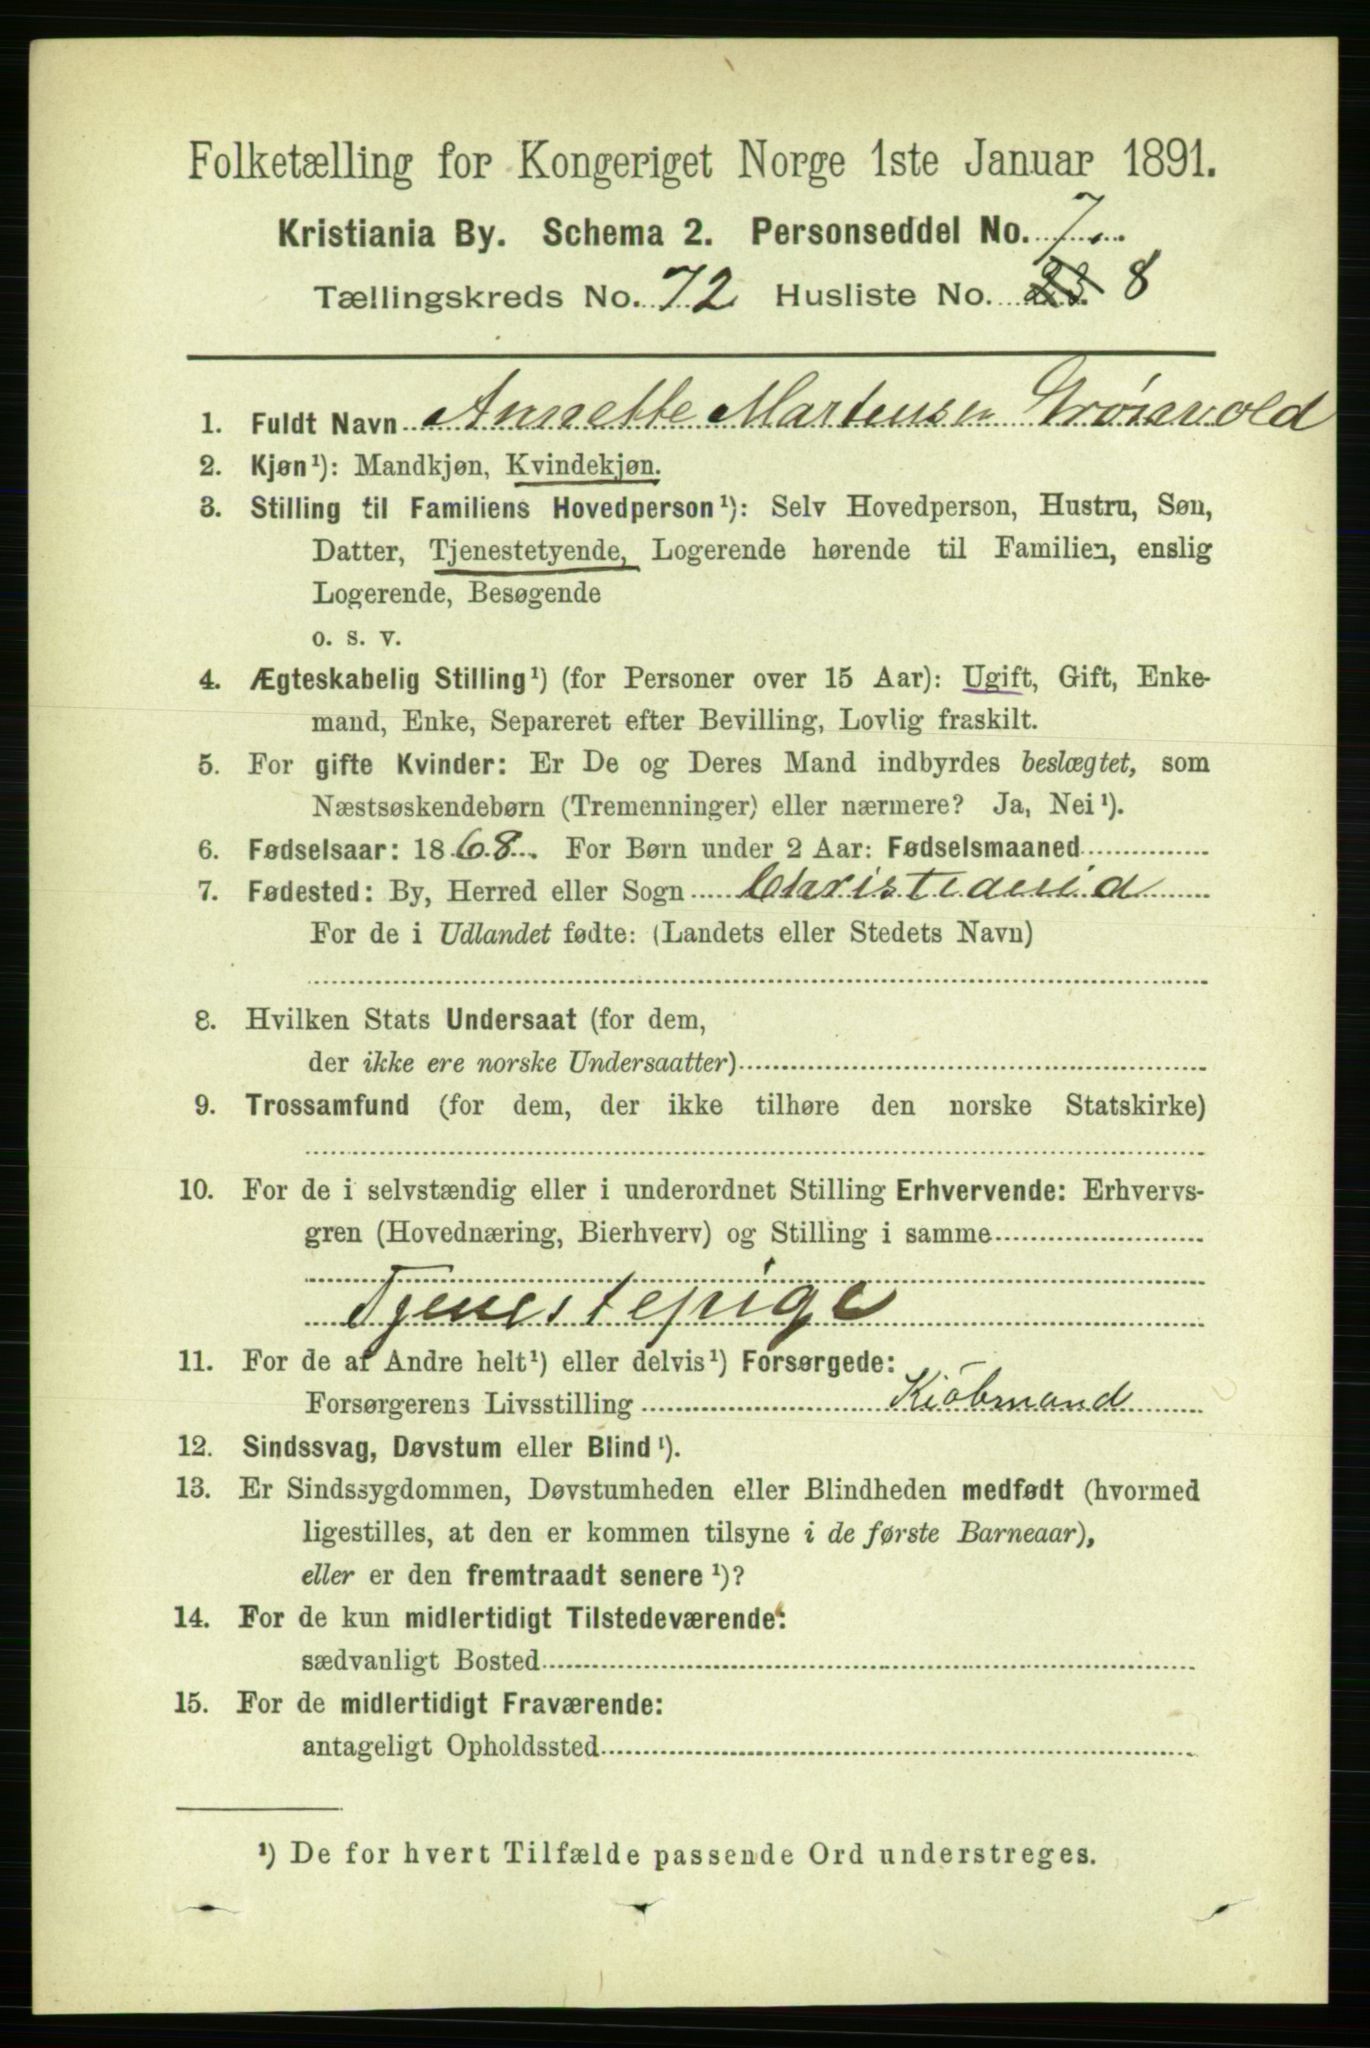 Folketælling for Kongeriget Norge 1ste Januar 1891.
Kristiania By. Schema 2. Personseddel No. 7
Tællingskreds No. 72 Husliste No. 23 8
1. Fuldt Navn Annette Martensen Grönvold
2. Kjøn¹): Mandkjøn, Kvindekjøn.
3. Stilling til Familiens Hovedperson¹): Selv Hovedperson, Hustru, Søn,
Datter, Tjenestetyende, Logerende hørende til Familien, enslig
Logerende, Besøgende
o. s. v.
4. Ægteskabelig Stilling¹) (for Personer over 15 Aar): Ugift, Gift, Enke-
mand, Enke, Separeret efter Bevilling, Lovlig fraskilt.
5. For gifte Kvinder: Er De og Deres Mand indbyrdes beslægtet, som
Næstsøskendebørn (Tremenninger) eller nærmere? Ja, Nei¹).
6. Fødselsaar: 1868. For Børn under 2 Aar: Fødselsmaaned
7. Fødested: By, Herred eller Sogn Christiania
For de i Udlandet fødte: (Landets eller Stedets Navn)
8. Hvilken Stats Undersaat (for dem,
der ikke ere norske Undersaatter)
9. Trossamfund (for dem, der ikke tilhøre den norske Statskirke)
10. For de i selvstændig eller i underordnet Stilling Erhvervende: Erhvervs-
gren (Hovednæring, Bierhverv) og Stilling i samme
Tjenestepige
11. For de af Andre helt¹) eller delvis¹) Forsørgede:
Forsørgerens Livsstilling Kiöbmand
12. Sindssvag, Døvstum eller Blind¹).
13. Er Sindssygdommen, Døvstumheden eller Blindheden medfødt (hvormed
ligestilles, at den er kommen tilsyne i de første Barneaar),
eller er den fremtraadt senere¹)?
14. For de kun midlertidigt Tilstedeværende:
sædvanligt Bosted
15. For de midlertidigt Fraværende:
antageligt Opholdssted
¹) De for hvert Tilfælde passende Ord understreges.